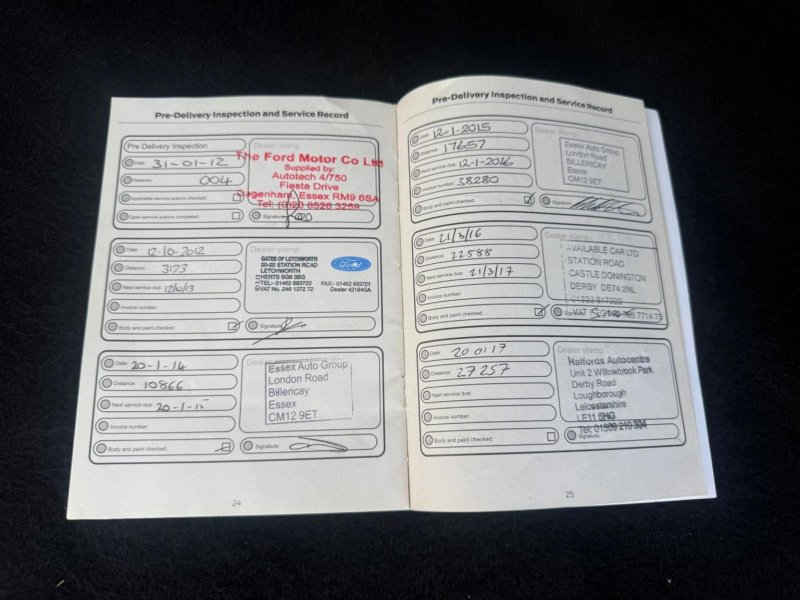 Pre-Delivery Inspection and Service Record
Pre Delivery Inspection
Date: 31-01-12
Distance: 004
Applicable service actions checked:
Open service actions completed:
Dealer stamp
The Ford Motor Co Ltd
Supplied by:
Autotech 4/750
Fiesta Drive
Dagenham, Essex RM9 6SA
Tel: (0)20 8526 3259
Signature:
Date: 12-10-2012
Distance: 3173
Next service due: 12/10/13
Invoice number:
Body and paint checked:
Dealer stamp
GATES OF LETCHWORTH
20-22 STATION ROAD
LETCHWORTH
HERTS SG6 3BG
TEL:- 01462 683722 FAX:- 01462 683721
VAT No. 246 1372 72 Dealer 42184GA
Ford
Signature:
Date: 20-1-14
Distance: 10866
Next service due: 20-1-15
Invoice number:
Body and paint checked:
Dealer stamp
Essex Auto Group
London Road
Billericay
Essex
CM12 9ET
Signature:
24
Pre-Delivery Inspection and Service Record
Date: 12-1-2015
Distance: 17657
Next service due: 12-1-2016
Invoice number: 38280
Body and paint checked:
Dealer stamp
Essex Auto Group
London Road
BILLERICAY
Essex
CM12 9ET
Signature:
Date: 21/3/16
Distance: 22588
Next service due: 21/3/17
Invoice number:
Body and paint checked:
Dealer stamp
AVAILABLE CAR LTD
STATION ROAD
CASTLE DONINGTON
DERBY DE74 2NL
VAT
Date: 20 01 17
Distance: 27257
Next service due:
Invoice number:
Body and paint checked:
Dealer stamp
Halfords Autocentre
Unit 2 Willowbrook Park
Derby Road
Loughborough
Leicestershire
LE11 5HG
Tel: 01509 210 304
Signature:
25